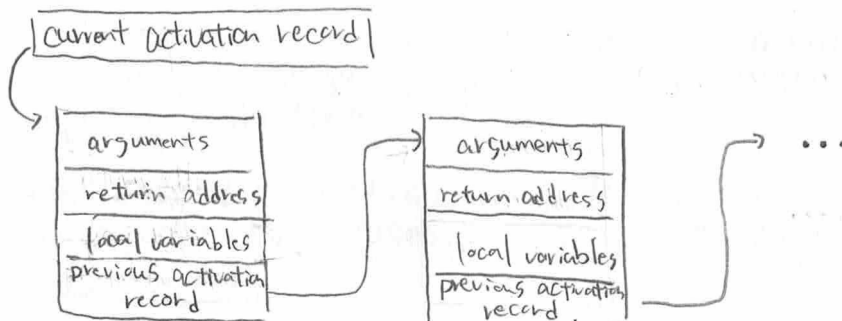 current activation record
arguments
return address
local variables
previous activation
record
arguments
return address
local variables
previous activation
record
...